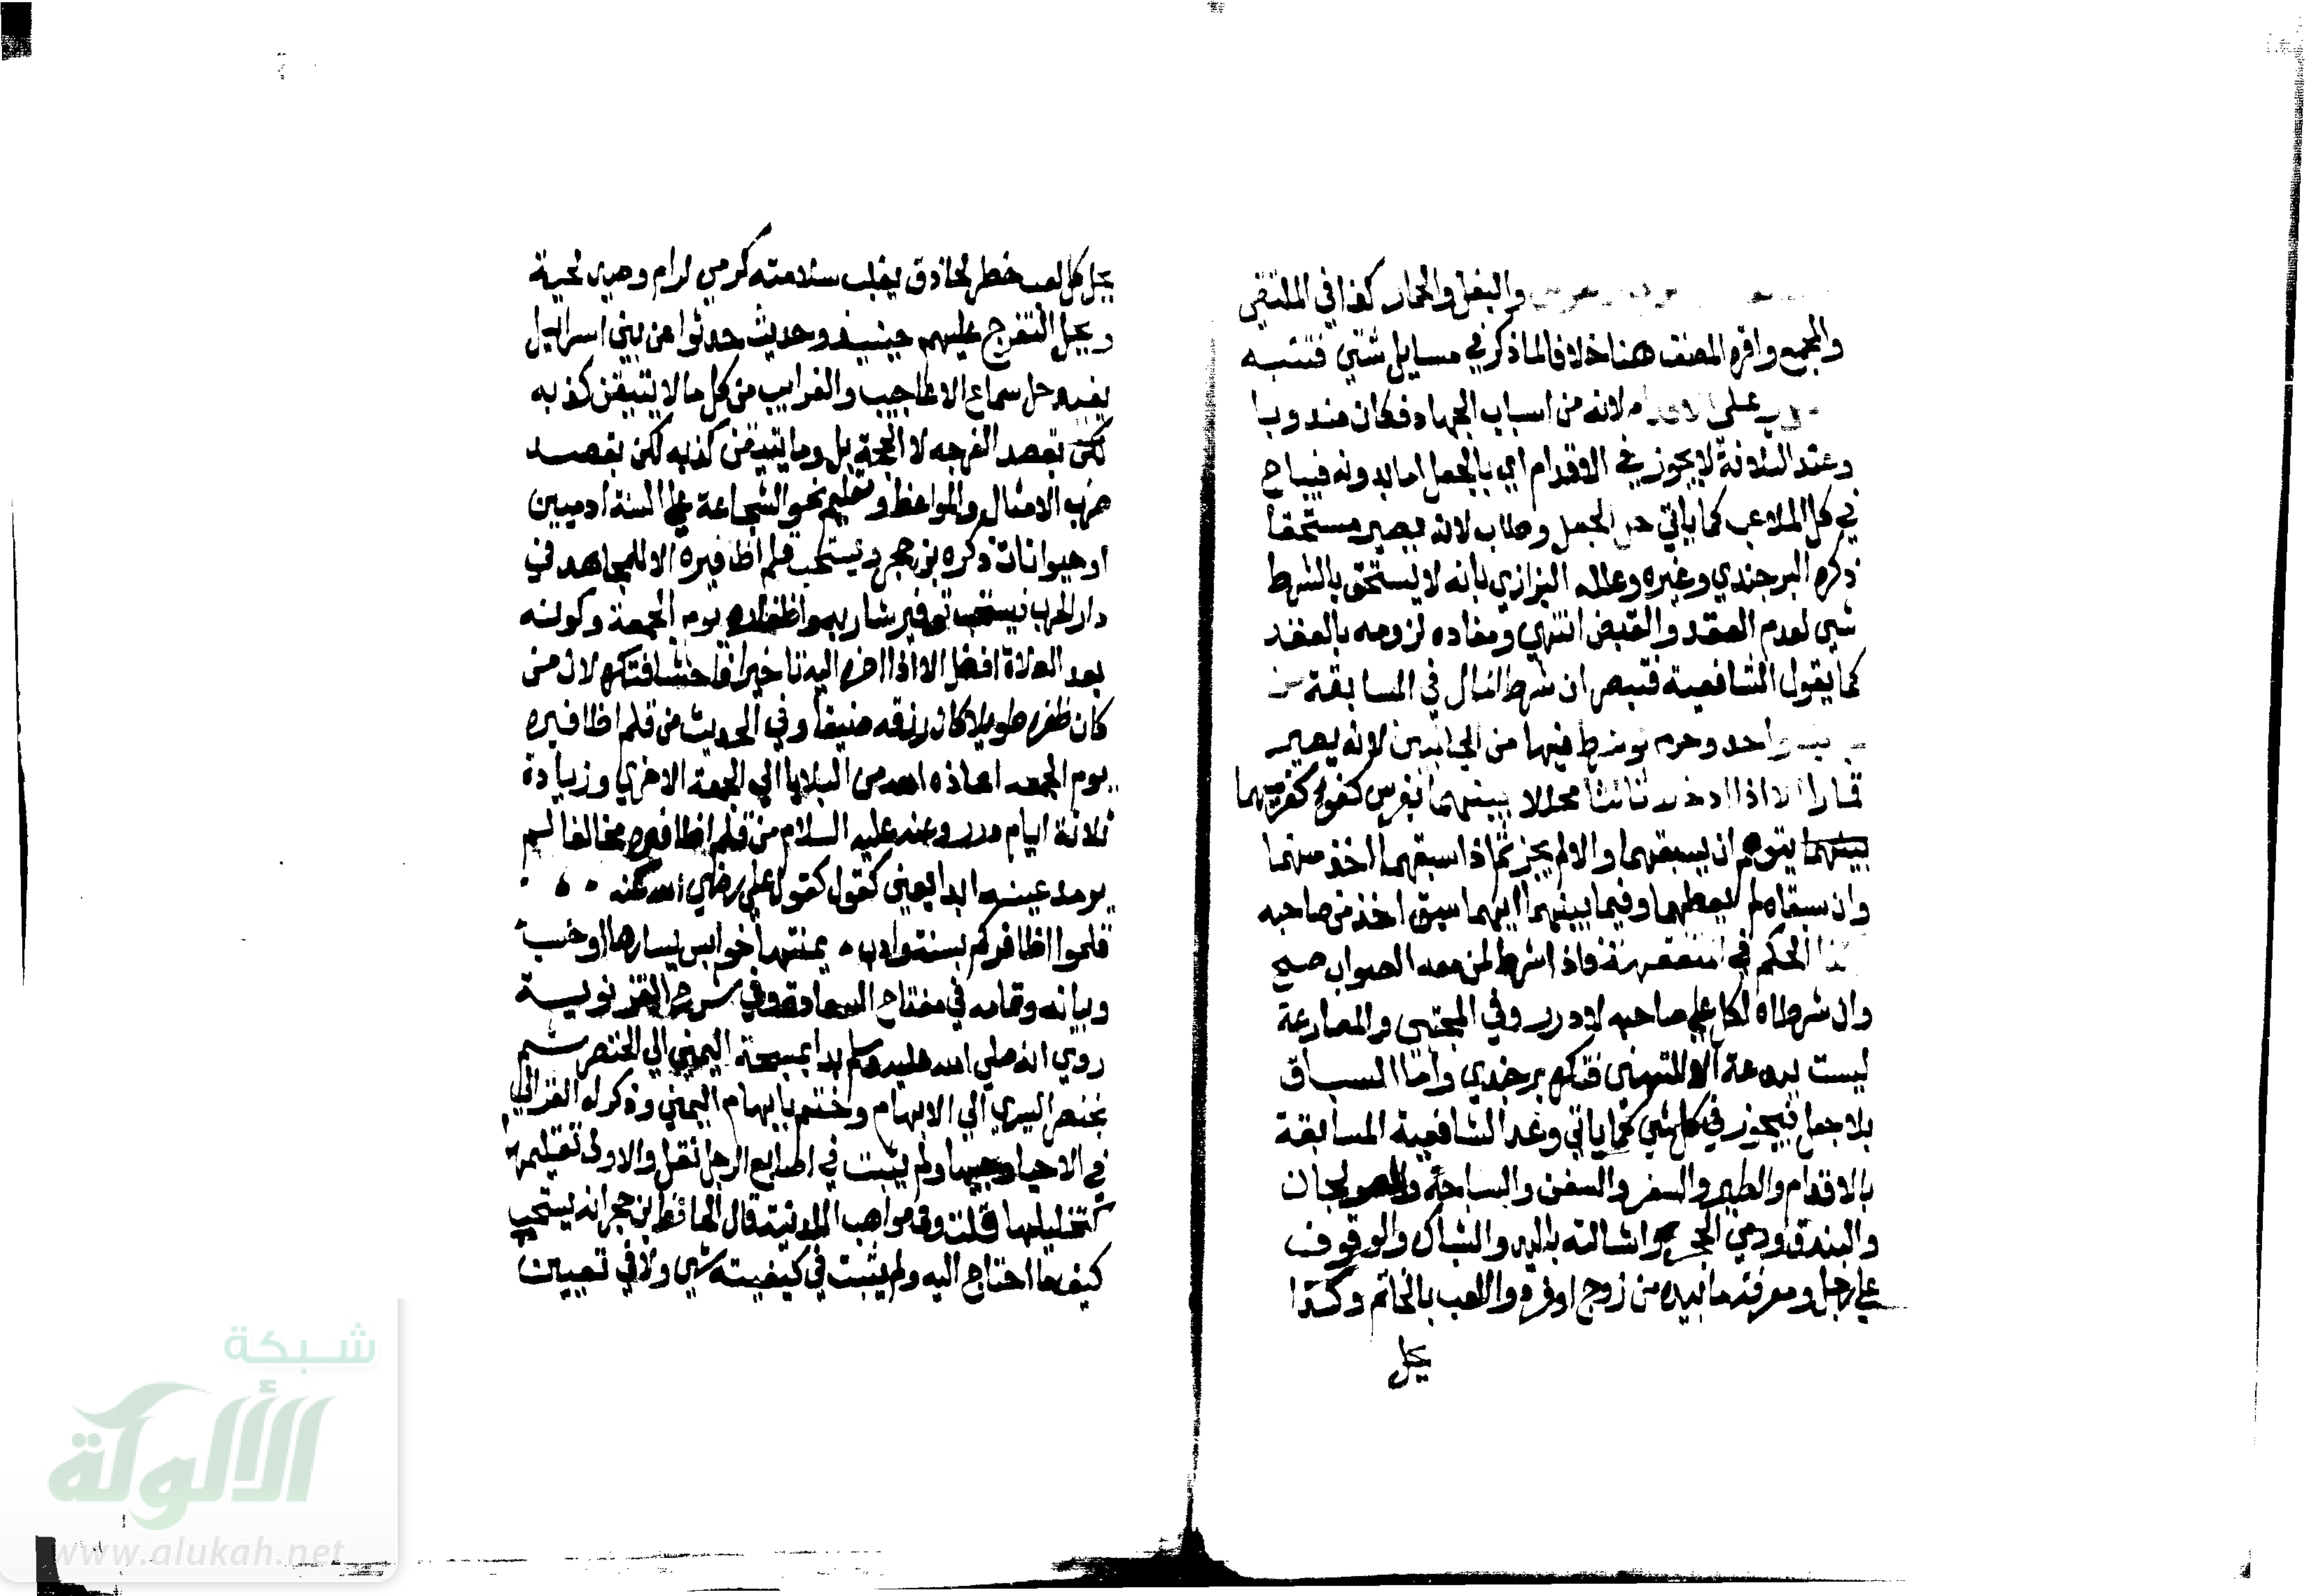 والبغل والحمار كذا في الملتقي
والمجمع واقره المصنف هنا خلافا لما ذكر في مسايل شتي فتنبه
على لانه من اسباب الجهاد فكان مندوبا
وعند الثلاثة لا يجوز في الاقدام اي بالجعل اما بدونه فيباح
في كل الملاعب كما ياتي حل الجعل وطاب لا لانه يصير مستحقا
ذكره البرجندي وغيره وعلله البزازي بانه لا يستحق بالشرط
شي لعدم العقد والقبض انتهي ومفاده لزومه بالعقد
كما يقول الشافعية فتبصر ان شرط المال في المسابقة من
واحد وحرم لو شرط فيها من الجانبين لانه يصير
قمارا الا اذا ادخلا ثالثا محللا بينهما بفرس كفو لفرسيهما
بينهما يتوهم ان يسبقهما والا لم يجز ثم اذا سبقهما اخذ منهما
وان سبقاه لم يعطهما وفيما بينهما ايهما سبق اخذ من صاحبه
الحكم في المتفقهة فاذا شرط لمن معه الصواب صح
وان شرطاه لكل علي صاحبه لا درر وفي المجتبى والمصارعة
ليست ببدعة الا للتلهي فتكره برجندي واما السباق
بلا جعل فيجوز في كل شي كما ياتي وعند الشافعية المسابقة
بالاقدام والطير والبقر والسفن والسباحة والصولجان
والبندق ورمي الحجر واشالته باليد والشباك والوقوف
علي رجل ومعرفة ما بيده من زوج او فرد واللعب بالخاتم وكذا
يحل
يحل كل لعب خطر لحاذق يغلب سلامته كرمي لرام وصيد لحية
ويحل التفرج عليهم حينيذ وحديث حدثوا عن بني اسراييل
يفيد حل سماع الاعاجيب والغرايب من كل ما لا يتيقن كذبه
لكن بقصد الفرجه لا الحجة بل وما يتيقن كذبه لكن بقصد
ضرب الامثال والمواعظ وتعليم نحو الشجاعة علي السنة ادميين
او حيوانات ذكره بن حجر ويستحب قلم اظافيره الا للمجاهد في
دار الحرب فيستحب توفير شاربه واظفاره يوم الجمعة وكونه
بعد الصلاة افضل الا اذا اخره اليه تاخيرا فاحشا فتكره لان من
كان ظفره طويلا كان رزقه ضيقا وفي الحديث من قلم اظافيره
يوم الجمعه اعاذه الله من البلايا الي الجمعة الاخري وزيادة
ثلاثة ايام درر وعنه عليه السلام من قلم اظافيره مخالفا لم
يرمد عينه ابدا يعني كقول كقول علي رضي الله عنه
قلموا اظافركم بسنة وادب يمنتها خوابس يسارها اوخسب
وبيانه وتمامه في مفتاح السعادة وفي شرح الغزنوية
روي انه صلي الله عليه وسلم بدا بمسبحة اليمني الي الخنصر ثم
بخنصر اليسري الي الابهام وختم بابهام اليمني وذكر له الغزالي
في الاحيا وجها ولم يثبت في اصابع الرجل نقل والاولى تقليمها
كتخليلها قلت وفي مواهب اللدنية قال الحافظ ابن حجر انه يستحب
كيفما احتاج اليه ولم يثبت في كيفيته شي ولا في تعيين
شبكة
الألوكة
www.alukah.net